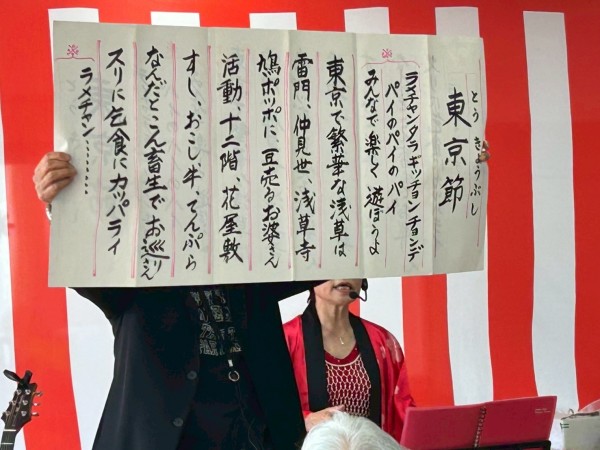 とうきょうぶし
東京節
ラメチャンタラギッチョンチョンデ
パイのパイのパイ
みんなで楽しく遊ぼうよ
東京で繁華な浅草は
雷門、仲見世、浅草寺
鳩ポッポに、豆売るお婆さん
活動、十二階、花屋敷
すし、おこし、牛、てんぷら
なんだとこん畜生でお巡りさん
スリに乞食にカッパライ
ラメチャン………